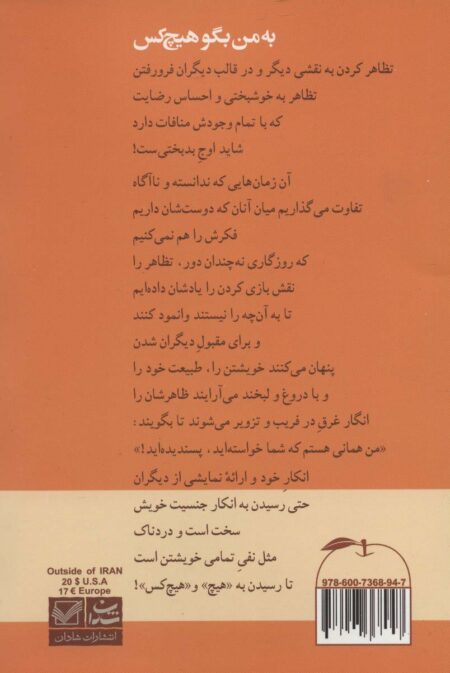 به من بگو هیچ‌کس
تظاهر کردن به نقشی دیگر و در قالب دیگران فرورفتن
تظاهر به خوشبختی و احساس رضایت
که با تمام وجودش منافات دارد
شاید اوج بدبختی‌ست!
آن زمان‌هایی که ندانسته و ناآگاه
تفاوت می‌گذاریم میان آنان که دوست‌شان داریم
فکرش را هم نمی‌کنیم
که روزگاری نه‌چندان دور، تظاهر را
نقش بازی کردن را یادشان داده‌ایم
تا به آن‌چه را نیستند وانمود کنند
و برای مقبولِ دیگران شدن
پنهان می‌کنند خویشتن را، طبیعت خود را
و با دروغ و لبخند می‌آرایند ظاهرشان را
انگار غرقِ در فریب و تزویر می‌شوند تا بگویند:
«من همانی هستم که شما خواسته‌اید، پسندیده‌اید!»
انکارِ خود و ارائهٔ نمایشی از دیگران
حتی رسیدن به انکار جنسیت خویش
سخت است و دردناک
مثل نفیِ تمامی خویشتن است
تا رسیدن به «هیچ» و «هیچ‌کس»!
Outside of IRAN
20 $ U.S.A
17 € Europe
شادان
انتشارات شادان
978-600-7368-94-7